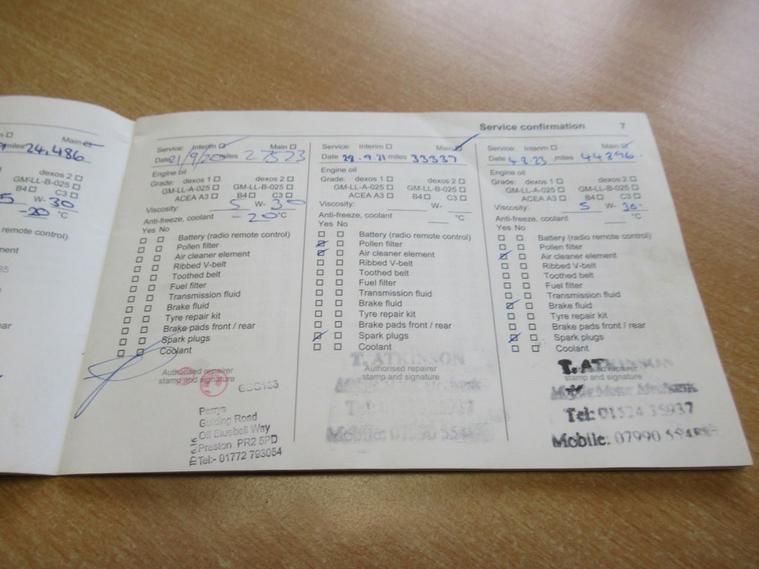 Service confirmation 7
Main
24,486
dexos 2
GM-LL-B-025
B4 C3
5 W- 30
-20 °C
remote control)
ement
rear
Service: Interim Main
Date 21/9/20 miles 27523
Engine oil
Grade: dexos 1 dexos 2
GM-LL-A-025 GM-LL-B-025
ACEA A3 B4 C3
Viscosity: 5 W- 30
Anti-freeze, coolant -20°C
Yes No
Battery (radio remote control)
Pollen filter
Air cleaner element
Ribbed V-belt
Toothed belt
Fuel filter
Transmission fluid
Brake fluid
Tyre repair kit
Brake pads front / rear
Spark plugs
Coolant
Authorised repairer
stamp and signature
Perrys
Guilding Road
Off Bluebell Way
Preston PR2 5PD
Tel:- 01772 793054
Service: Interim Main
Date 28.9.21 miles 33337
Engine oil
Grade: dexos 1 dexos 2
GM-LL-A-025 GM-LL-B-025
ACEA A3 B4 C3
Viscosity: W-
Anti-freeze, coolant °C
Yes No
Battery (radio remote control)
Pollen filter
Air cleaner element
Ribbed V-belt
Toothed belt
Fuel filter
Transmission fluid
Brake fluid
Tyre repair kit
Brake pads front / rear
Spark plugs
Coolant
T. ATKINSON
Authorised repairer
stamp and signature
Mobile:
Service: Interim Main
Date 4.8.23 miles 44896
Engine oil
Grade: dexos 1 dexos 2
GM-LL-A-025 GM-LL-B-025
ACEA A3 B4 C3
Viscosity: 5 W- 30
Anti-freeze, coolant °C
Yes No
Battery (radio remote control)
Pollen filter
Air cleaner element
Ribbed V-belt
Toothed belt
Fuel filter
Transmission fluid
Brake fluid
Tyre repair kit
Brake pads front / rear
Spark plugs
Coolant
T. ATKINSON
stamp and signature
Mobile Motor Mechanic
Tel: 01524 35937
Mobile: 07990